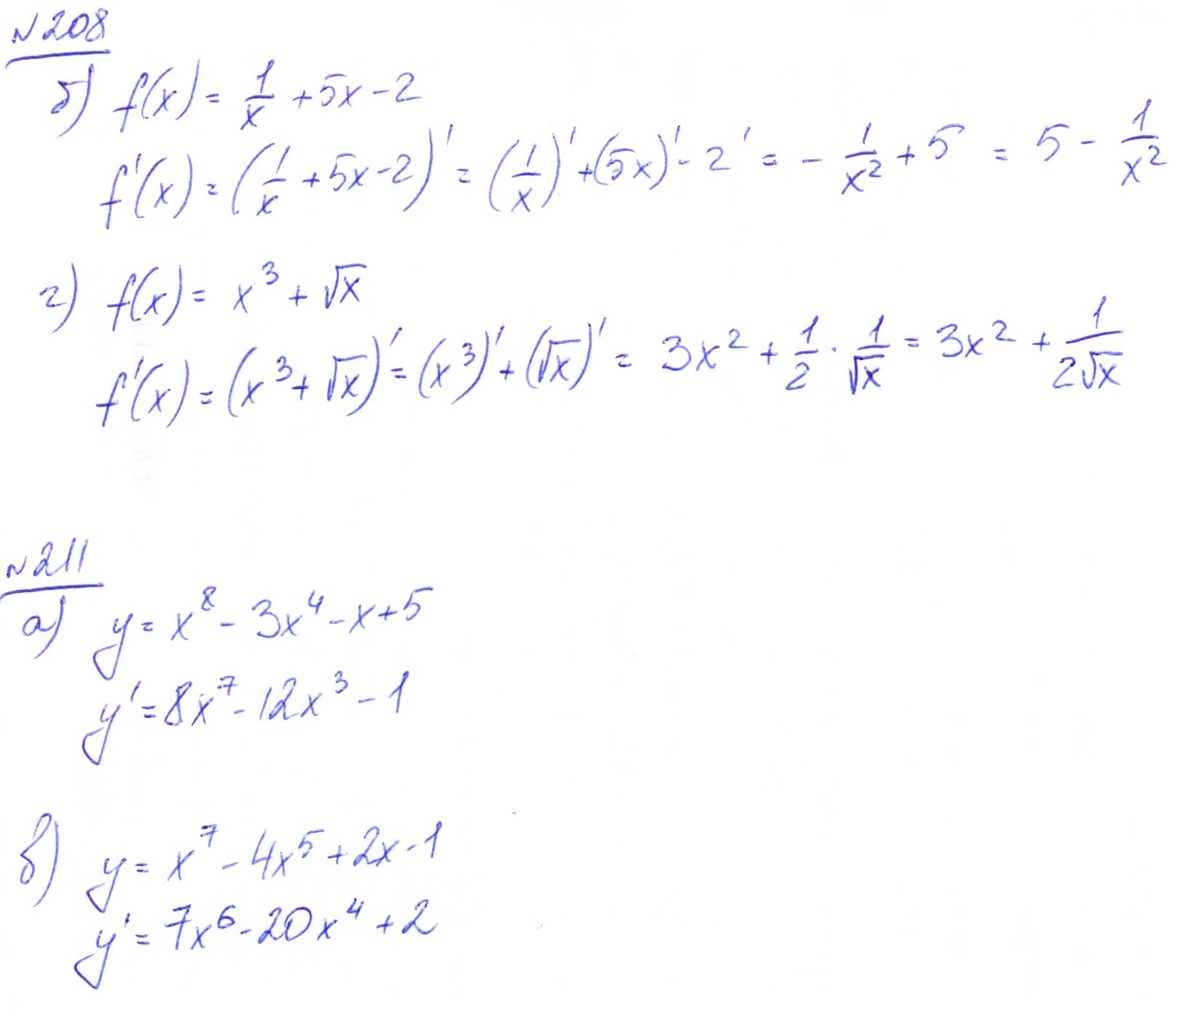 №208
б) f(x) = 1/x + 5x - 2
f'(x) = (1/x + 5x - 2)' = (1/x)' + (5x)' - 2' = - 1/x² + 5 = 5 - 1/x²
г) f(x) = x³ + √x
f'(x) = (x³ + √x)' = (x³)' + (√x)' = 3x² + 1/2 · 1/√x = 3x² + 1/(2√x)
№211
а) y = x⁸ - 3x⁴ - x + 5
y' = 8x⁷ - 12x³ - 1
в) y = x⁷ - 4x⁵ + 2x - 1
y' = 7x⁶ - 20x⁴ + 2